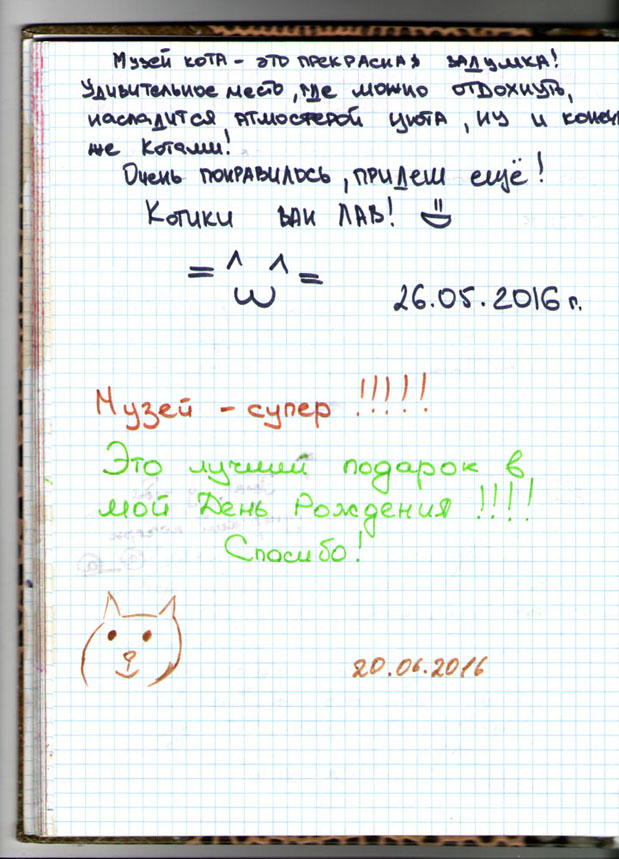 Музей кота - это прекрасная задумка!
Удивительное место, где можно отдохнуть,
насладится атмосферой уюта, ну и конеч
же котами!
Очень понравилось, придеш ещё!
Котики ван лав!
26.05.2016 г.
Музей - супер !!!!!
Это лучший подарок в
мой День Рождения !!!!
Спасибо!
20.06.2016